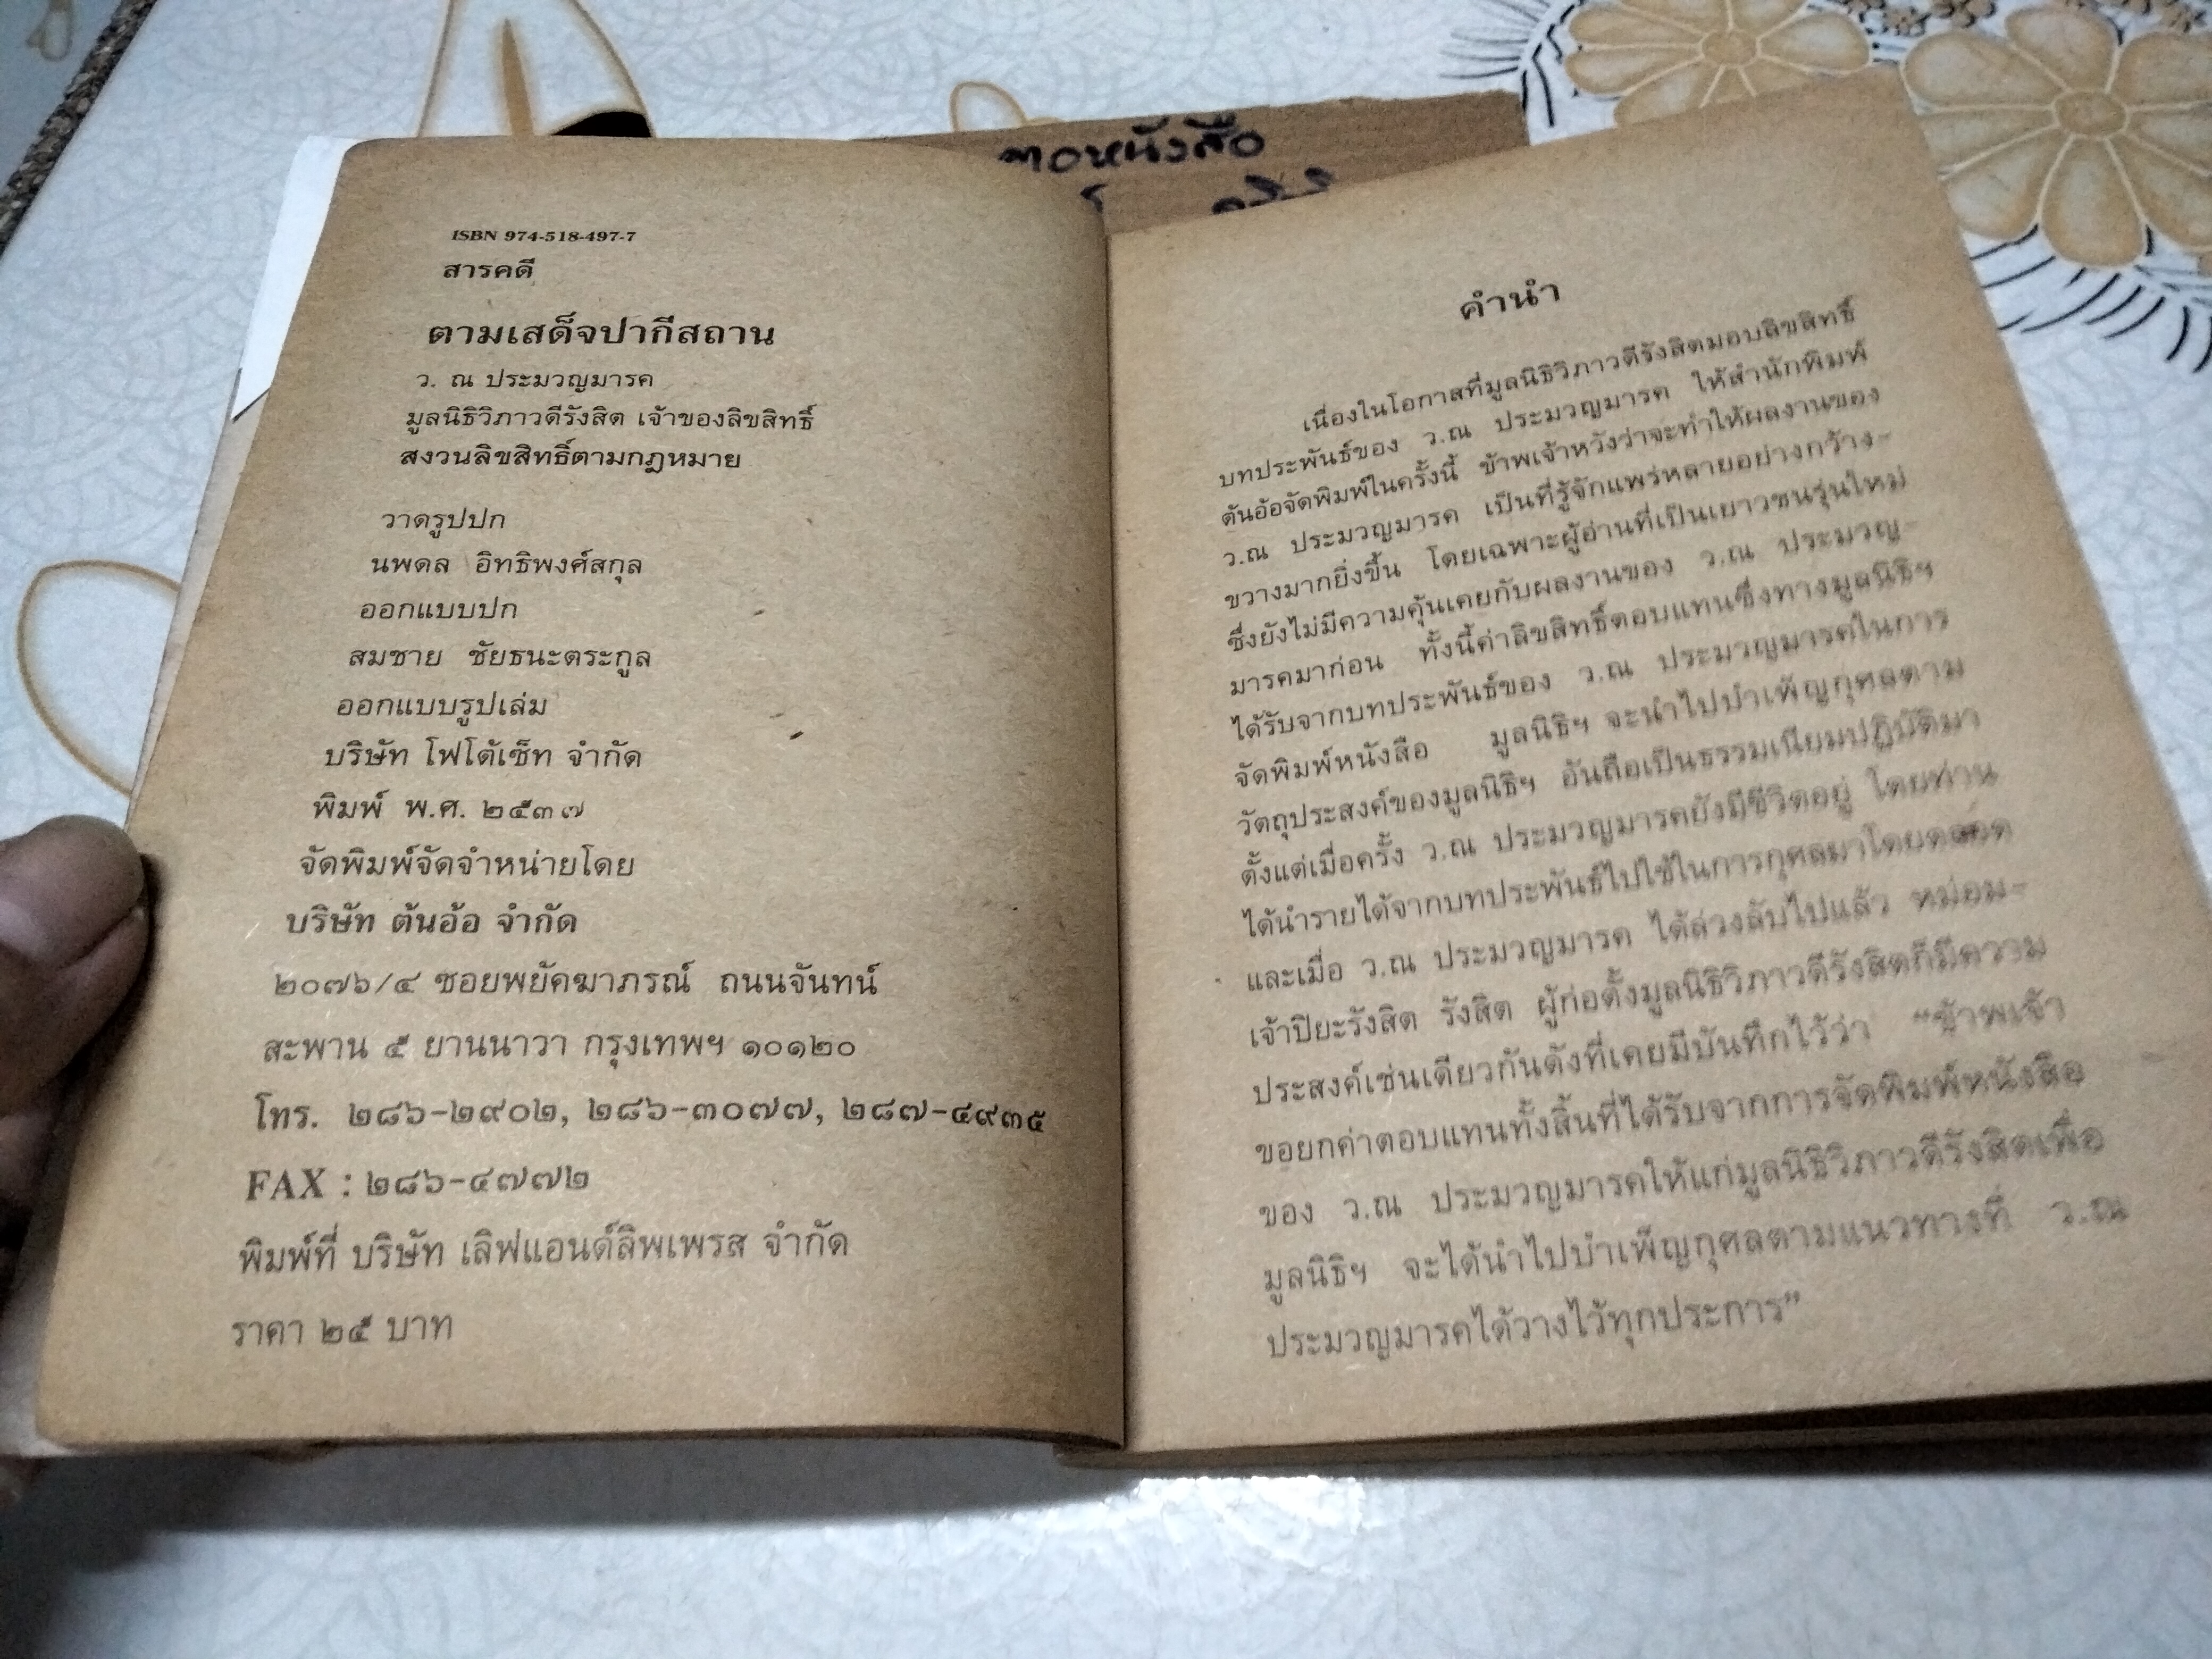 ISBN 974-518-497-7
สารคดี
ตามเสด็จปากีสถาน
ว. ณ ประมวญมารค
มูลนิธิวิภาวดีรังสิต เจ้าของลิขสิทธิ์
สงวนลิขสิทธิ์ตามกฎหมาย
วาดรูปปก
นพดล อิทธิพงศ์สกุล
ออกแบบปก
สมชาย ชัยธนะตระกูล
ออกแบบรูปเล่ม
บริษัท โฟโต้เซ็ท จำกัด
พิมพ์ พ.ศ. ๒๕๓๗
จัดพิมพ์จัดจำหน่ายโดย
บริษัท ต้นอ้อ จำกัด
๒๐๗๖/๔ ซอยพยัคฆาภรณ์ ถนนจันทน์
สะพาน ๕ ยานนาวา กรุงเทพฯ ๑๐๑๒๐
โทร. ๒๘๖-๒๙๐๒, ๒๘๖-๓๐๗๗, ๒๘๗-๔๙๓๕
FAX : ๒๘๖-๔๗๗๒
พิมพ์ที่ บริษัท เลิฟแอนด์ลิพเพรส จำกัด
ราคา ๒๕ บาท
หนังสือ
คำนำ
เนื่องในโอกาสที่มูลนิธิวิภาวดีรังสิตมอบลิขสิทธิ์
บทประพันธ์ของ ว.ณ ประมวญมารค ให้สำนักพิมพ์
ต้นอ้อจัดพิมพ์ในครั้งนี้ ข้าพเจ้าหวังว่าจะทำให้ผลงานของ
ว.ณ ประมวญมารค เป็นที่รู้จักแพร่หลายอย่างกว้าง-
ขวางมากยิ่งขึ้น โดยเฉพาะผู้อ่านที่เป็นเยาวชนรุ่นใหม่
ซึ่งยังไม่มีความคุ้นเคยกับผลงานของ ว.ณ ประมวญ-
มารคมาก่อน ทั้งนี้ค่าลิขสิทธิ์ตอบแทนซึ่งทางมูลนิธิฯ
ได้รับจากบทประพันธ์ของ ว.ณ ประมวญมารคในการ
จัดพิมพ์หนังสือ มูลนิธิฯ จะนำไปบำเพ็ญกุศลตาม
วัตถุประสงค์ของมูลนิธิฯ อันถือเป็นธรรมเนียมปฏิบัติมา
ตั้งแต่เมื่อครั้ง ว.ณ ประมวญมารคยังมีชีวิตอยู่ โดยท่าน
ได้นำรายได้จากบทประพันธ์ไปใช้ในการกุศลมาโดยตลอด
และเมื่อ ว.ณ ประมวญมารค ได้ล่วงลับไปแล้ว หม่อม-
เจ้าปิยะรังสิต รังสิต ผู้ก่อตั้งมูลนิธิวิภาวดีรังสิตก็มีความ
ประสงค์เช่นเดียวกันดังที่เคยมีบันทึกไว้ว่า “ข้าพเจ้า
ขอยกค่าตอบแทนทั้งสิ้นที่ได้รับจากการจัดพิมพ์หนังสือ
ของ ว.ณ ประมวญมารคให้แก่มูลนิธิวิภาวดีรังสิตเพื่อ
มูลนิธิฯ จะได้นำไปบำเพ็ญกุศลตามแนวทางที่ ว.ณ
ประมวญมารคได้วางไว้ทุกประการ”